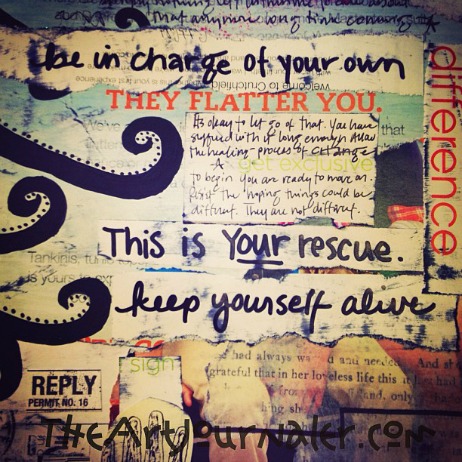 that anymore long time coming
be in charge of your own
welcome to Crutchfield
THEY FLATTER YOU.
Its okay to let go of that. You have
suffered with it long enough. Allow
the healing process of CHANGE
To begin you are ready to move on.
that
get exclusive
difference
different. They are not different.
This is your rescue.
Tankinis, tunic
is yours to exp
keep yourself alive
REPLY
PERMIT NO. 16
sign
had always wa d and needed. And sh
grateful that in her loveless life this
and, only
TheArtJournaler.com